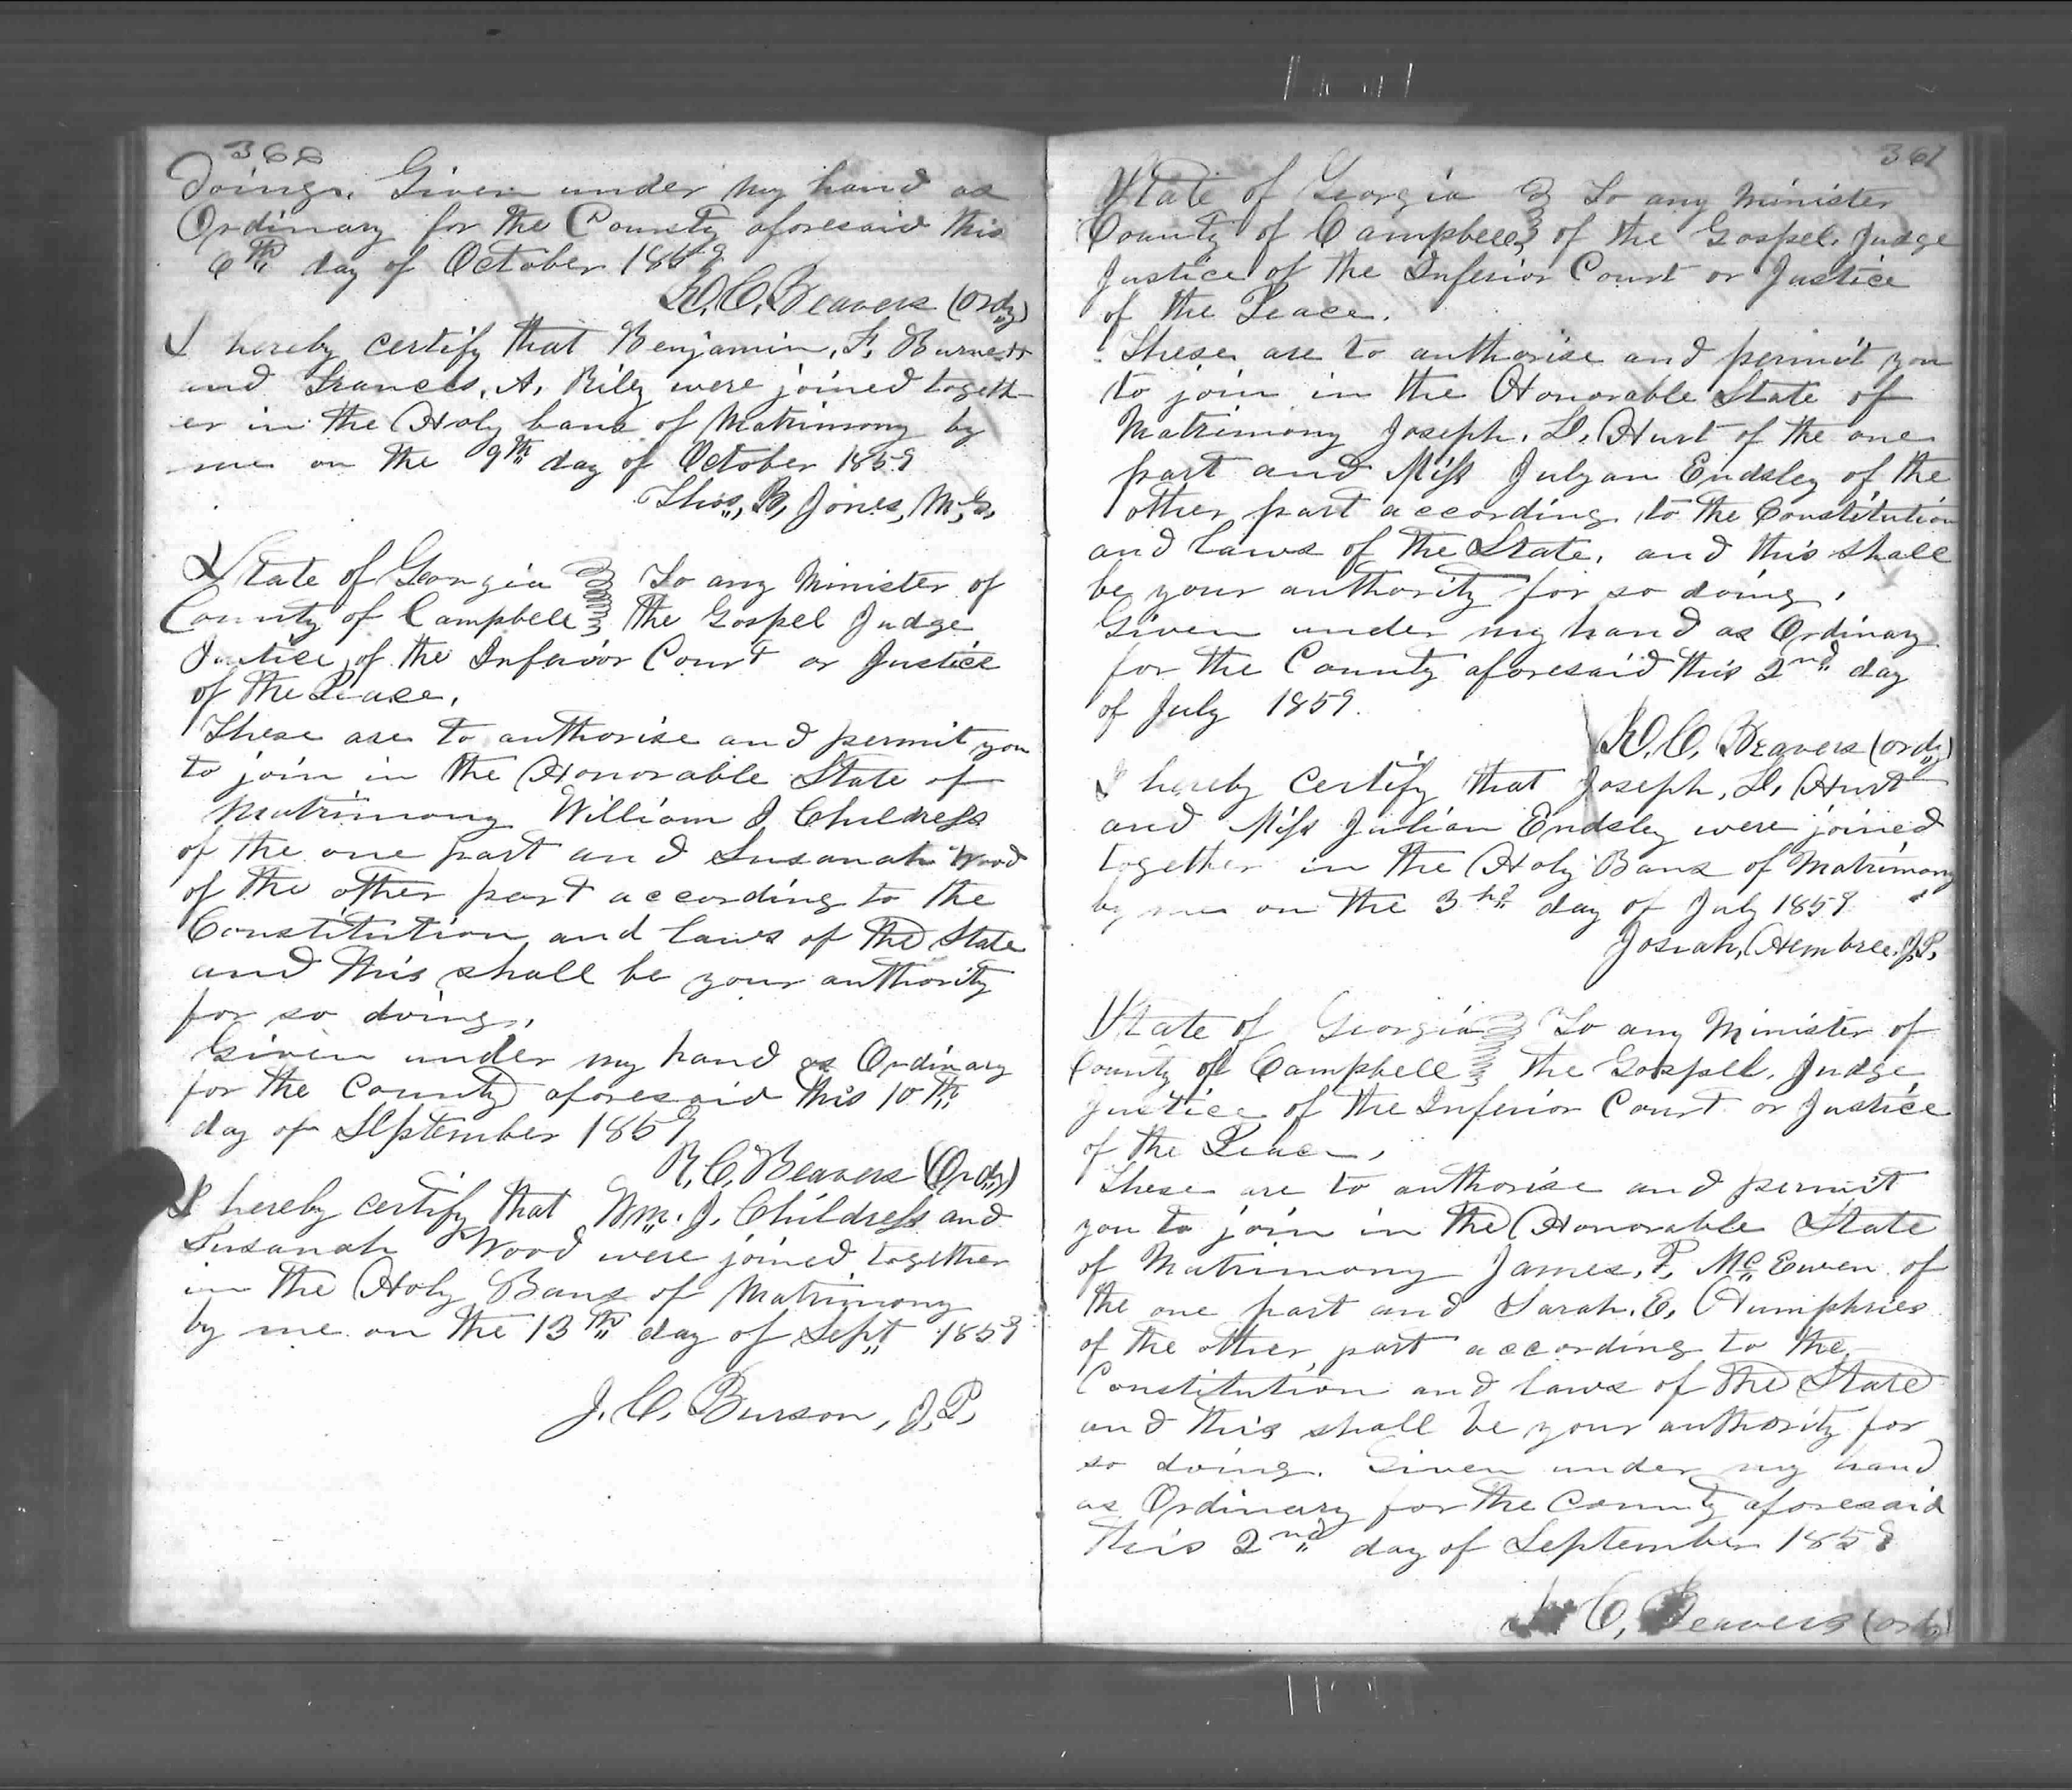 366
doing. Given under my hand as
Ordinary for the County aforesaid this
6th day of October 1859
R. C. Beavers (Ordy)
I hereby certify that Benjamin, F. Burnett
and Frances, A. Riley were joined togeth
er in the Holy bans of Matrimony by
me on the 9th day of October 1859
Thos, B, Jones, M, G,
State of Georgia } To any Minister of
County of Campbell } the Gospel Judge
Justice of the Inferior Court or Justice
of the Peace.
These are to authorise and permit you
to join in the Honorable State of
Matrimony William J Childress
of the one part and Susanah Wood
of the other part according to the
Constitution and laws of the State
and this shall be your authority
for so doing,
Given under my hand as Ordinary
for the County aforesaid this 10th
day of September 1859
R. C. Beavers (Ordy)
I hereby certify that Wm. J. Childress and
Susanah Wood were joined together
in the Holy Bans of Matrimony
by me on the 13th day of Sept 1859
J. C. Burson, J. P.
367
State of Georgia } To any Minister
County of Campbell } of the Gospel. Judge
Justice of the Inferior Court or Justice
of the Peace.
These are to authorise and permit you
to join in the Honorable State of
Matrimony Joseph. L. Hurt of the one
part and Miss Julyan Endsley of the
other part according to the Constitution
and laws of the State, and this shall
be your authority for so doing.
Given under my hand as Ordinary
for the County aforesaid this 2nd day
of July 1859.
R. C. Beavers (Ordy)
I hereby certify that Joseph, L, Hurt
and Miss Julian Endsley were joined
together in the Holy Bans of Matrimony
by me on the 3rd day of July 1859
Josiah, Hembree. J. P.
State of Georgia } To any Minister of
County of Campbell } the Gospel. Judge
Justice of the Inferior Court or Justice
of the Peace,
These are to authorise and permit
you to join in the Honorable State
of Matrimony James, F, McEwen of
the one part and Sarah. E, Humphries
of the other part according to the
Constitution and laws of the State
and this shall be your authority for
so doing. Given under my hand
as Ordinary for the County aforesaid
this 2nd day of September 1859
C, Beavers (Ordy)